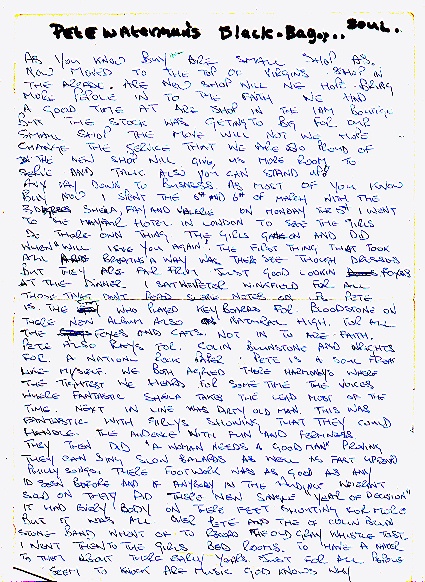 PETE WATERMAN'S BLACK.BAG... SOUL.
AS YOU KNOW BUY ARE SMALL SHOP AS
NOW MOVED TO THE TOP OF VIRGINS SHOP IN
THE ARCADE. ARE NOW SHOP WILL WE HOPE BRING
MORE PEPOLE IN TO THE FAITH WE HAD
A GOOD TIME AT ARE SHOP IN THE I AM BOUTIQE
BUT THE STOCK WAS GETING TO BIG FOR OUR
SMALL SHOP THE MOVE WILL NOT WE HOPE
CHANGE THE SERVICE THAT WE ARE SO PROUD OF
THE NEW SHOP WILL GIVE US MORE ROOM TO
SERVE AND TALK ALSO YOU CAN STAND UP
ANY WAY DOWN TO BUSINESS. AS MOST OF YOU KNOW
BUY NOW I SPENT THE 5TH AND 6TH OF MARCH WITH THE
3 DEGREES SHEILA, FAY AND VALERIE ON MONDAY THE 5TH I WENT
TO THE MAYFAIR HOTEL IN LONDON TO SEE THE GIRLS
DO THERE OWN THING THE GIRLS CAME ON AND DID
WHEN WILL I SEE YOU AGAIN. THE FIRST THING THAT TOOK
ALL BREATHS A WAY WAS THERE SEE THOUGH DRESSES
BUT THEY ARE FAR FROM JUST GOOD LOOKIN FOXES
AT THE DINNER I SAT NEXT PETER WINKFIELD FOR ALL
THOSE THAT DON'T READ SLEEVE NOTES ON LPS PETE
IS THE WHO PLAYED KEY BOARDS FOR BLOODSTONE ON
THERE NEW ALBUM ALSO ON NATURAL HIGH. FOR ALL
THE FOXES AND CATS NOT IN TO ARE FAITH.
PETE ALSO PLAYS FOR COLIN BLUNSTONE AND WRIGHTS
FOR A NATIONAL ROCK PAPER. PETE IS A SOUL FREAK
LIKE MYSELF. WE BOTH AGREED THERE HARMONEYS WHERE
THE TIGHTEST WE HEARD FOR SOME TIME THE VOICES
WHERE FANTASTIC SHEILA TAKES THE LEAD MOST OF THE
TIME. NEXT IN LINE WAS DIRTY OLD MAN. THIS WAS
FANTASTIC WITH GIRLYS SHOWING THAT THEY COULD
HANDLE THE AUDENCE WITH FUN AND
THEY THEN DID "A WOMAN NEEDS A GOOD MAN" PROVING
THEY CAN SING SLOW BALARDS AS WELL AS FAST UPTEMPO
PHILLY SONGS. THERE FOOTWORK WAS AS GOOD AS ANY
ID SEEN BEFORE AND IF ANYBODY IN THE AUDIANCE WERENT
SOLD ON THEM DID THERE NEW SINGLE "YEAR OF DECISION"
IT HAD EVERY BODY ON THERE FEET SHOUTING FOR MORE
BUT IT WAS ALL OVER PETE AND THE COLIN BLUN
STONE BAND WHENT OF TO RECORD THE OLD GRAY WHISTLE TEST.
I WENT THEN TO THE GIRLS BED ROOMS. TO HAVE A NATER
TO THAT ABOUT THERE EARLY YEARS. JUST FOR ALL PEPOLE
SEEM TO KNOCK ARE MUSIC GOD KNOWS WAY